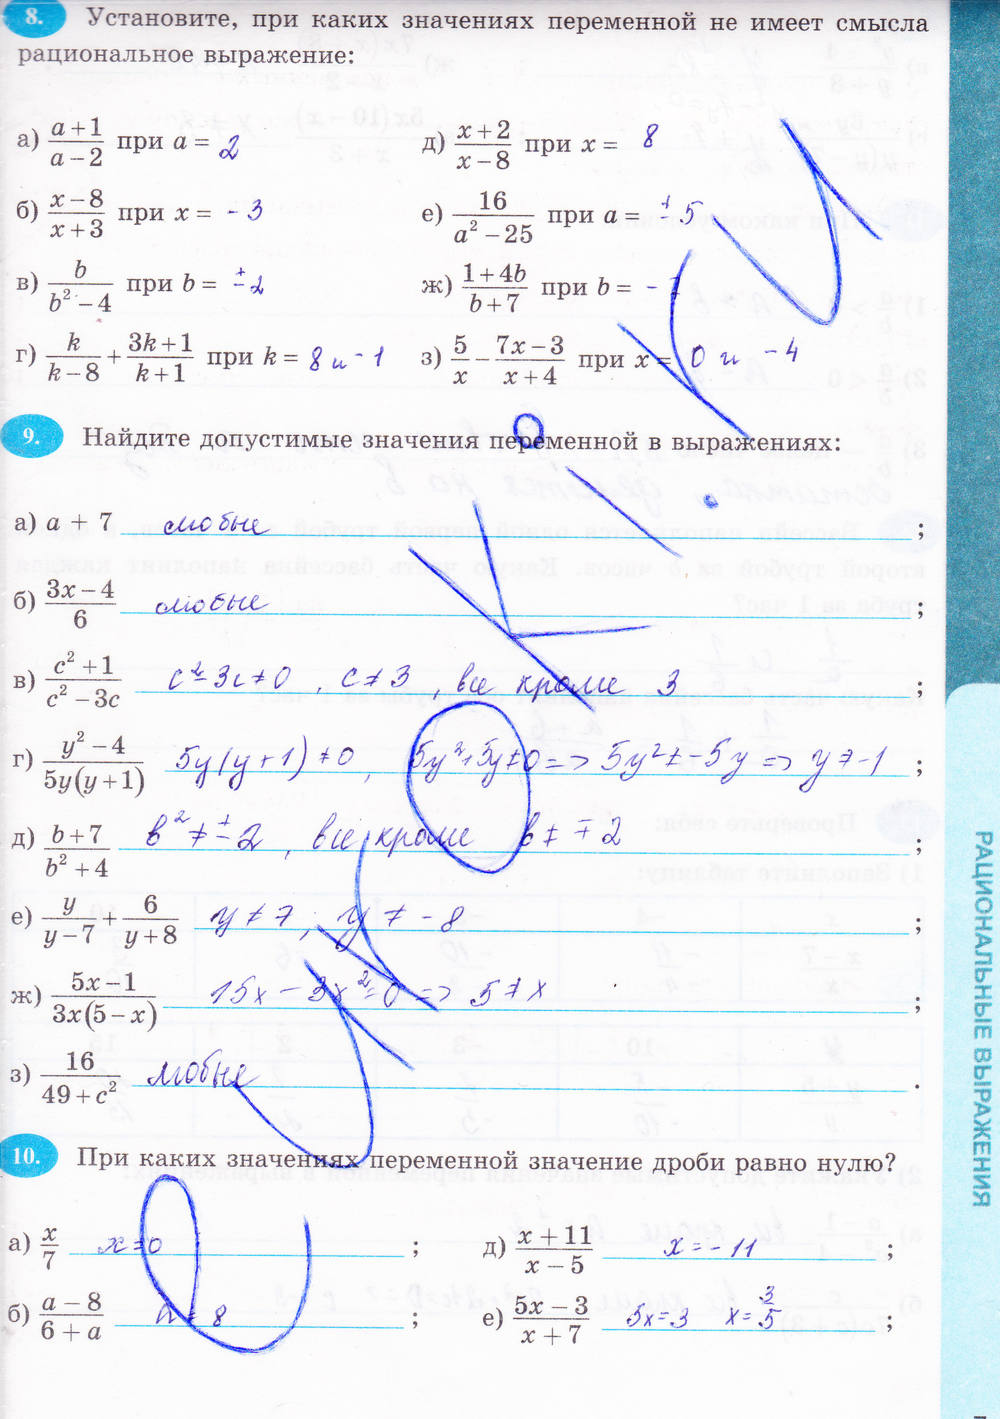 8. Установите, при каких значениях переменной не имеет смысла
рациональное выражение:
а) (a+1)/(a−2) при a = 2
д) (x+2)/(x−8) при x = 8
б) (x−8)/(x+3) при x = -3
е) 16/(a²−25) при a = ±5
в) b/(b²−4) при b = ±2
ж) (1+4b)/(b+7) при b = -7
г) k/(k−8) + (3k+1)/(k+1) при k = 8 и -1
з) 5/x − (7x−3)/(x+4) при x = 0 и -4
9. Найдите допустимые значения переменной в выражениях:
а) a + 7 любые ;
б) (3x−4)/6 любые ;
в) (c²+1)/(c²−3c) c²-3c≠0, c≠3, все кроме 3 ;
г) (y²−4)/(5y(y+1)) 5y(y+1)≠0, 5y²+5y≠0=>5y²≠-5y=>y≠-1 ;
д) (b+7)/(b²+4) b²≠±2, все кроме b≠∓2 ;
е) y/(y−7) + 6/(y+8) y≠7; y≠-8 ;
ж) (5x−1)/(3x(5−x)) 15x-3x²=0=>5≠x ;
з) 16/(49+c²) любые .
10. При каких значениях переменной значение дроби равно нулю?
а) x/7 x=0 ;
д) (x+11)/(x−5) x=-11 ;
б) (a−8)/(6+a) a=8 ;
е) (5x−3)/(x+7) 5x=3 x=3/5 ;
РАЦИОНАЛЬНЫЕ ВЫРАЖЕНИЯ